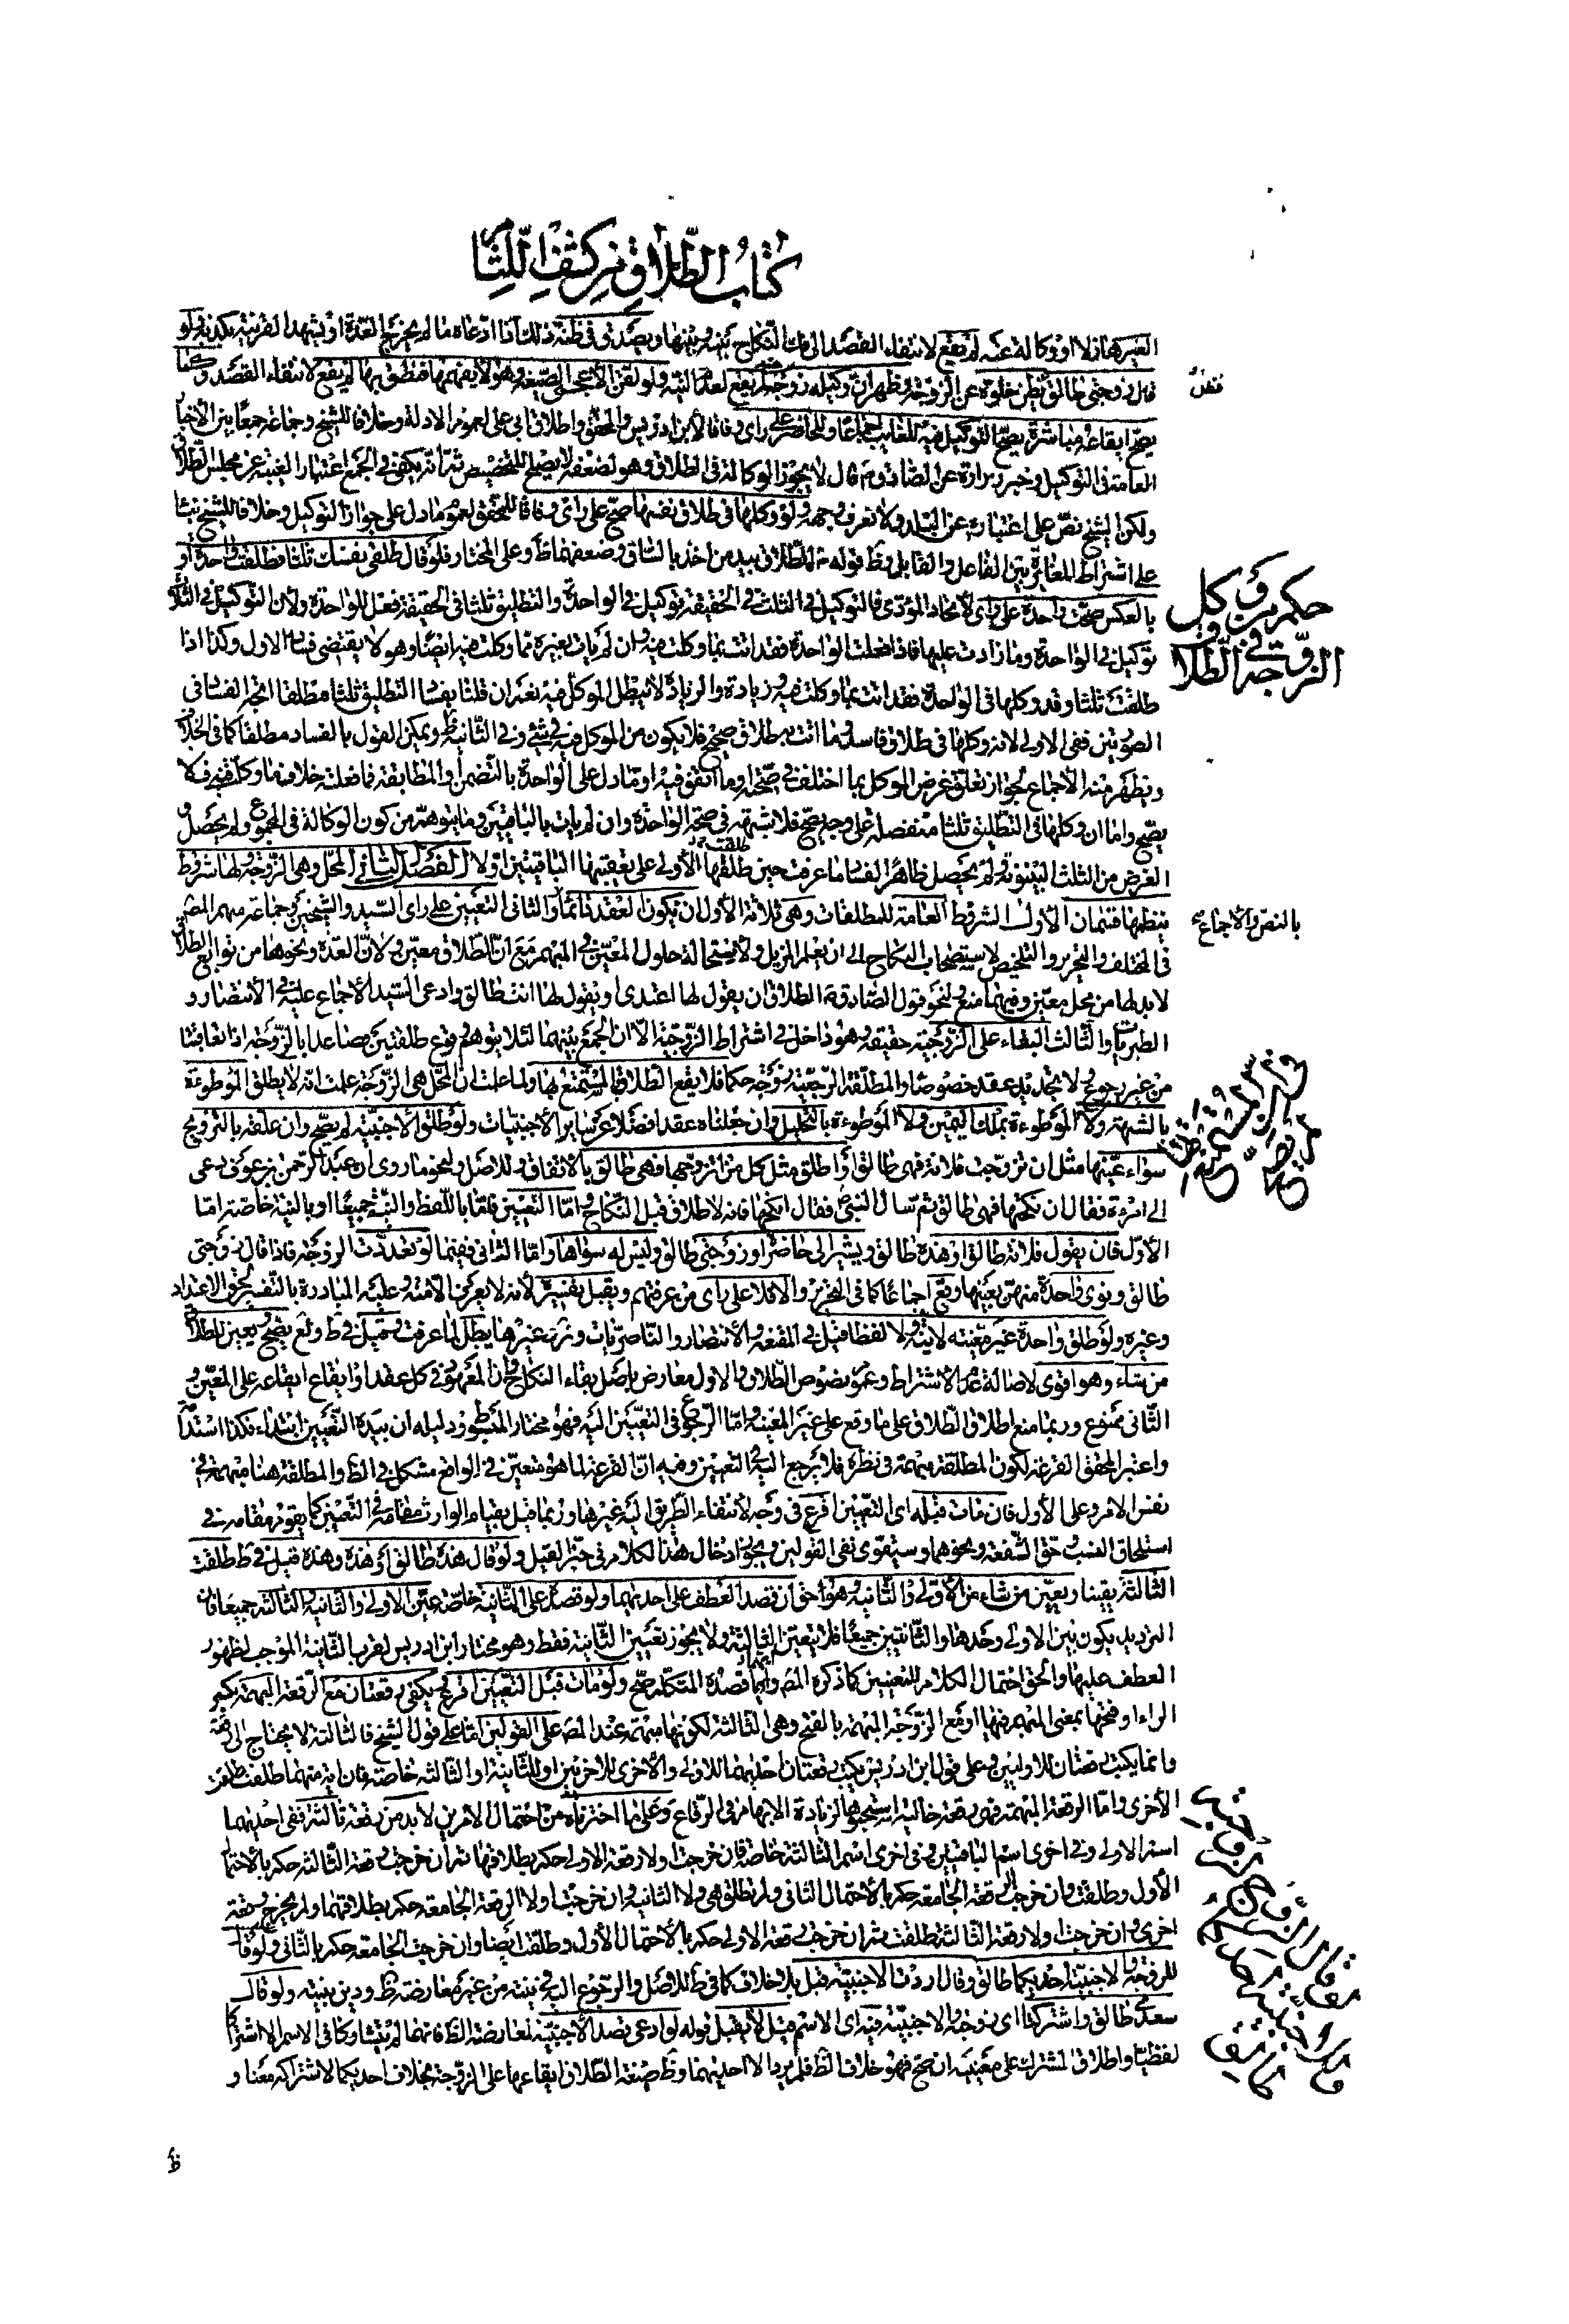 كتاب الطلاق من كشف اللثام
الغير هازلا او وكالة عنه لم يقع لانتفاء القصد الى فك النكاح بينه وبينها ويصدق في ظنه ذلك اذا ادعاه ما لم يخرج العدة او يشهد القرينة بكذبه ولو
قال زوجتي طالق بظن خلوه عن الزوجة وظهر ان وكيله زوجه لم يقع لعدم النية ولو لقن الأعجمي الصيغة وهو لا يفهمها فنطق بها لم يقع لانتفاء القصد وكما
يصح ايقاعه مباشرة يصح التوكيل فيه للغايب اجماعا وللحاضر على راي وفاقا لابن ادريس والمحقق واطلاق ابي علي لعموم الادلة وخلافا للشيخ وجماعة جمعا بين الأخبار
العامة في التوكيل وخبر زرارة عن الصادق ع قال لا يجوز الوكالة في الطلاق وهو لضعفه لا يصلح للتخصيص ثم انه يكفي في الجمع اعتبار الغيبة عن مجلس الطلاق
ولكن الشيخ نص على اعتباره عن البلد ولا نعرف وجهه ولو وكلها في طلاق نفسها صح على راي وفاقا للمحقق لعموم ما دل على جواز التوكيل وخلافا للشيخ بناء
على اشتراط المغايرة بين الفاعل والقابل وظ قوله ص الطلاق بيد من اخذ بالساق وضعفهما ظ وعلى المختار فلو قال طلقي نفسك ثلثا فطلقت واحدة او
بالعكس صحت واحدة على راي لاتحاد المؤدى فالتوكيل في الثلث في الحقيقة توكيل في الواحدة والتطليق ثلثا في الحقيقة فعل للواحدة ولان التوكيل في الثلاث
توكيل في الواحدة وما زادت عليها فاذا فعلت الواحدة فقد اتت بما وكلت فيه وان لم يات بغيره مما وكلت فيه ايضا وهو لا يقتضي فساد الاول وكذا اذا
طلقت ثلثا وقد وكلها في الواحدة فقد اتت بما وكلت فيه وزيادة والزيادة لا تبطل الموكل فيه نعم ان قلنا بفساد التطليق ثلثا مطلقا اتجه الفساد في
الصورتين ففي الاولى لانه وكلها في طلاق فاسد وما اتت به طلاق صحيح فلا يكون من الموكل فيه في شئ وفي الثانية ظ ويمكن القول بالفساد مطلقا كما في الخلاف
ويظهر منه الاجماع لجواز تعلق غرض الموكل بما اختلف في صحته او ما اتفق فيه او ما دل على الواحدة بالتضمن او المطابقة فما فعلته خلاف ما وكل فيه فلا
يصح واما ان وكلها في التطليق ثلثا منفصلة على وجه يصح فلا شبهة في صحة الواحدة وان لم يات بالباقيتين وما يتوهم من كون الوكالة في المجموع ولم يحصل و
الغرض من الثلث البينونة ولم يحصل ظاهر الفساد ما عرفت حين طلقها الأولى على تعقيبها الباقيتين او لا الفصل الثاني المحل وهي الزوجة ولها شروط
ينظمها قسمان الأول الشروط العامة للمطلقات وهي ثلاثة الأول ان يكون العقد دائما والثاني التعيين على راي السيد والشيخين وجماعة منهم المصنف
في المختلف والتحرير والتلخيص لاستصحاب النكاح الى ان يعلم المزيل ولاستحالة حلول المعين في المبهم مع ان الطلاق معين ولان العدة ونحوها من توابع الطلاق
لا بد لها من محل معين وفيهما منع ولنحو قول الصادق ع الطلاق ان يقول لها اعتدى او يقول لها انت طالق وادعى السيد الاجماع عليه في الأنتصار و
الطبريات والثالث البقاء على الزوجية حقيقة وهو داخل في اشتراط الزوجية الا ان الجمع بينهما لئلا يتوهم وقوع طلقتين فصاعدا بالزوجة اذا تعاقبتا
من غير رجوع ولا تجديد عقد خصوصا والمطلقة الرجعية زوجة حكما فلا يقع الطلاق بالمستمتع بها ولما علمت ان المحل هي الزوجة علمت انه لا يطلق الموطوءة
بالشبهة ولا الموطوءة بملك اليمين ولا الموطوءة بالتحليل وان جعلناه عقدا فضلا عن ساير الأجنبيات ولو طلق الأجنبية لم يصح وان علقه بالتزويج
سواء عينها مثل ان تزوجت فلانة فهي طالق او اطلق مثل كل من اتزوجها فهي طالق بالاتفاق وللاصل ولنحو ما روى ان عبد الرحمن بن عوف دعى
الى امرأة فقال ان نكحتها فهي طالق ثم سال النبي ص فقال انكحها فانه لا طلاق قبل النكاح واما التعيين فاما باللفظ والنية جميعا او بالنية خاصة اما
الأول فان يقول فلانة طالق او هذه طالق ويشير الى حاضرة او زوجتي طالق وليس له سواها واما الثاني ففيما لو تعددت الزوجة فاذا قال زوجتي
طالق ونوى واحدة منهن بعينها وقع اجماعا كما في التحرير والا فلا على راي من عرفتهم ويقبل تفسيره لانه لا يعرف الا منه وعليه المبادرة بالتفسير لحق الاعتداد
وغيره ولو طلق واحدة غير معينة لانية ولا لفظا قيل في المقنعة والأنتصار والناصريات وغيرها يبطل لما عرفت وقيل في ط و يع يصح ويعين للطلاق
من شاء وهو اقوى لاصالة عدم الاشتراط وعموم نصوص الطلاق والاول معارض باصل بقاء النكاح وان المعهود في كل عقد او ايقاع ايقاعه على المعين و
الثاني ممنوع وربما منع اطلاق الطلاق على ما وقع على غير المعينة واما الرجوع في التعيين اليه فهو مختار المبسوط ودليله ان بيده التعيين ابتداء فكذا استدامة
واعتبر المحقق القرعة لكون المطلقة مبهمة في نظره فلا يرجع اليه في التعيين وفيه ان القرعة لما هو متعين في الواقع مشكل في الظ والمطلقة هنا مبهمة في
نفس الامر وعلى الأول فان مات قبله اى التعيين اقرع في وجه لانتفاء الطريق اليه غيرها وربما قيل بقيام الوارث مقامه في التعيين كما يقوم مقامه في
استلحاق النسب وحق الشفعة ونحوهما وسيقوى نفي القولين ويجوز ادخال هذا الكلام في حيز القيل ولو قال هذه طالق او هذه وهذه قيل في ط طلقت
الثالثة يقينا ويعين من شاء من الاولى والثانية وهو احق ان قصد العطف على احديهما ولو قصده على الثانية خاصة عين الاولى والثانية والثالثة جميعا فان
الترديد يكون بين الاولى وحدها والثانيتين جميعا فلا يتعين الثالثة ولا يجوز تعيين الثانية فقط وهو مختار ابن ادريس لقرب الثانية الموجب لظهور
العطف عليها والحق احتمال الكلام للتعيين كما ذكره المصـ وايهما قصده المتكلم صح ولو مات قبل التعيين اقرع ويكفي رقعتان مع الرقعة المبهمة بكسر
الراء او فتحها بمعنى المبهم فيها او مع الزوجة المبهمة بالفتح وهي الثالثة لكونها مبهمة عند المصـ على القولين اما على قول الشيخ فالثالثة لا يحتاج الى رقعة
وانما يكتب رقعتان للاوليين وعلى قول ابن ادريس يكتب رقعتان احديهما للاولى والأخرى للاخريين او للثانية او الثالثة خاصة فان اية منهما طلقت طلقت
الأخرى واما الرقعة المبهمة فهي رقعة خالية استحبوها لزيادة الابهام في الرقاع وعلى ما اخترناه من احتمال الامرين لا بد من رقعة ثالثة ففي احديهما
اسم الاولى وفي اخرى اسم الباقيتين وفي اخرى اسم الثالثة خاصة فان خرجت اولا رقعة الاولى حكم بطلاقها ثم ان خرجت رقعة الثالثة حكم بالاحتمال
الأول وطلقت وان خرجت الرقعة الجامعة حكم بالاحتمال الثاني ولم تطلق هي ولا الثانية وان خرجت اولا الرقعة الجامعة حكم بطلاقهما ولم يخرج رقعة
اخرى وان خرجت اولا رقعة الثالثة طلقت ثم ان خرجت رقعة الاولى حكم بالاحتمال الأول وطلقت ايضا وان خرجت الجامعة حكم بالثاني ولو قال
للزوجة والاجنبية احديكما طالق وقال اردت الاجنبية قبل بلا خلاف كما في ط للاصل والرجوع اليه في نيته من غير معارضة ظ ودين بنيته ولو قال
سعدى طالق واشتركتا اى زوجة والاجنبية فيه اى الاسم قيل لا يقبل قوله لو ادعى قصد الأجنبية لمعارضة الظ فانهما لم يتشاركا في الاسم الا اشتراكا
لفظيا واطلاق المشترك على معنييه ان صح فهو خلاف الظ فلم يرد الا احديهما وظ صيغة الطلاق ايقاعها على الزوجة بخلاف احديكما لاشتراكه معنا و
ظ
فقال
حكم من وكل
الزوجة في
الطلاق
بالنص والاجماع